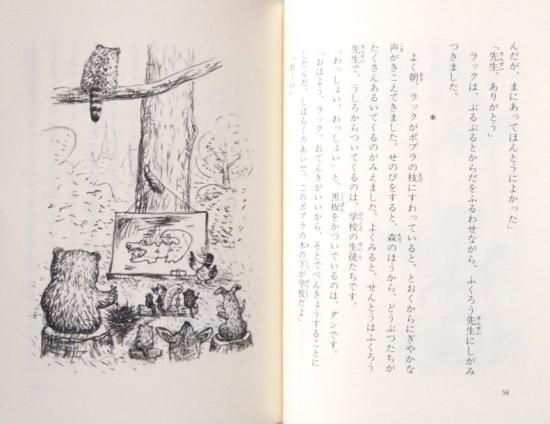 んだが、まにあってほんとうによかった」
「先生、ありがとう」
ラックは、ぶるぶるとからだをふるわせながら、ふくろう先生にしがみ
つきました。
*
よく朝、ラックがポプラの枝にすわっていると、とおくからにぎやかな
声がきこえてきました。せのびをすると、森のほうから、どうぶつたちが
たくさんあるいてくるのがみえました。よくみると、せんとうはふくろう
先生で、うしろからついてくるのは、学校の生徒たちです。
「わっしょい、わっしょい」と、黒板をかついでいるのは、ダンです。
「おはよう、ラック。おてんきがいいから、そとでべんきょうすることに
したんだ。しばらくのあいだ、このポプラの木の下が学校だよ」
58